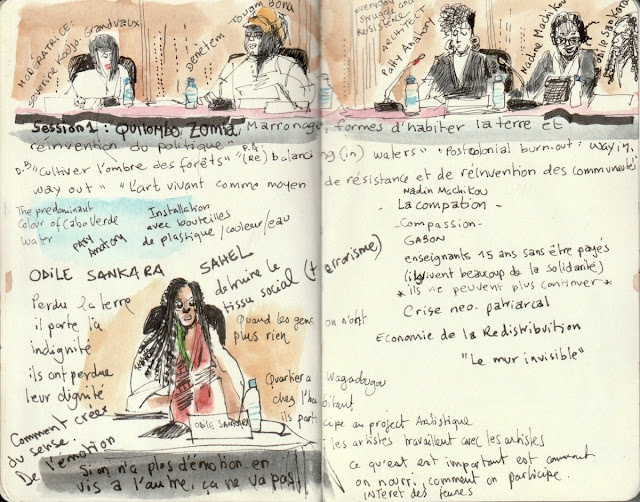 MODÉRATRICE:
Soulvère Kodjo-Grandvaux
Dénètem
Touam Bona
everyday
struggle and
Resistence
ARCHITECT
Patty Anahory
Nadine Machikou
Odile Sankara
Session 1 : QUILOMBO ZOMIA, Marronage, formes d'habiter la terre et
réinvention du politique
D.B "Cultiver l'ombre des forêts" "P.A. (Re) balancing (in) waters" "Postcolonial burn-out: way in,
way out" "L'art vivant comme moyen de résistance et de réinvention des communautés
The predominant
colour of Cabo Verde
Water
Paty
Anahory
Installation
avec bouteilles
de plastique/couleur/eau
Nadin Machikou
- La compation -
- Compassion -
GABON
enseignants 15 ans sans être payés
(ils vivent beaucoup de la solidarité)
* ils ne peuvent plus continuer *
Crise neo-patriarcal
Economie de la Redistribuition
"Le mur invisible"
ODILE SANKARA
Perdu la terre
il porte la
indignité
ils ont perdue
leur dignité
SAHEL
detruire le
tissu social (terrorisme)
Quand les gens on n'ont
plus rien
Quartier a Wagadougou
chez l'habitant
ils participe au project Artistique
les artistes travaillent avec les artistes
ODILE SANKARA
Comment créer
du sense.
De l'émotion
Si on n'a plus d'émotion en
vis à l'autre, ça ne va pas!
ce qu'est important est comment
on nourr, comment on participe.
INTERET des jeunes